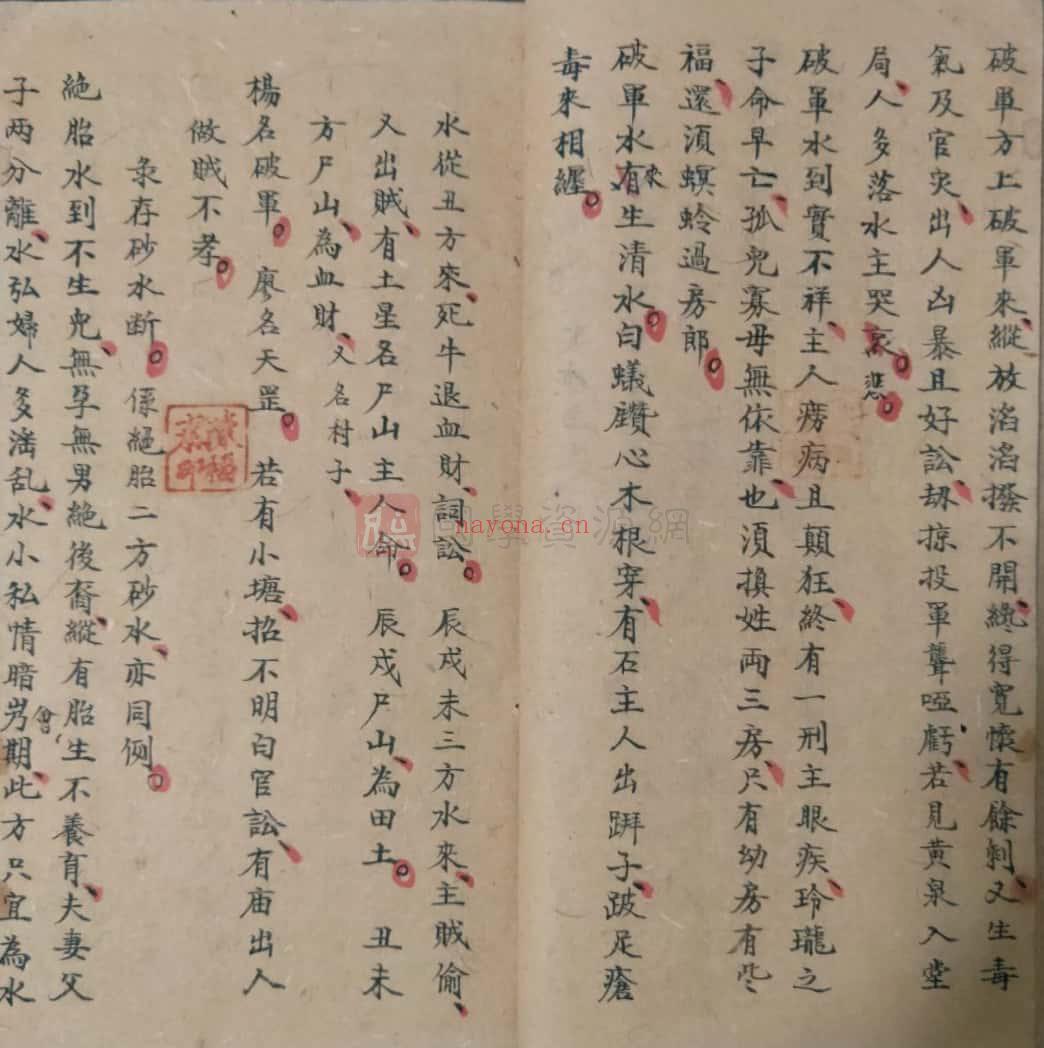 破軍方上破軍來縱放滔滔撥不開纔得寬懷有餘剩又生毒
氣及官灾出人凶暴且好訟刼掠投軍聾啞虧若見黃泉入堂
局人多落水主哭哀悲
破軍水到實不祥主人癆病且顛狂終有一刑主眼疾玲瓏之
子命早亡孤兒寡母無依靠也湏換姓両三房只有幼房有些
福還湏螟蛉過房郎
破軍水有來生清水白蟻鑽心木根穿有石主人出跰子跛足瘡
毒來相纏
水從丑方來死牛退血財詞訟 辰戌未三方水來主賊偷
又出賊有土星名尸山主人命 辰戌尸山為田土 丑未
方尸山為血財又名村子
楊名破軍 廖名天罡 若有小塘招不明白官訟有庙出人
做賊不孝
彔存砂水断 係絕胎二方砂水亦同例
絕胎水到不生兒無孕無男絕後裔縱有胎生不養育夫妻父
子两分離水弘婦人多滛乱水小私情暗會期此方只宜為水
國學資源網
nayona.cn